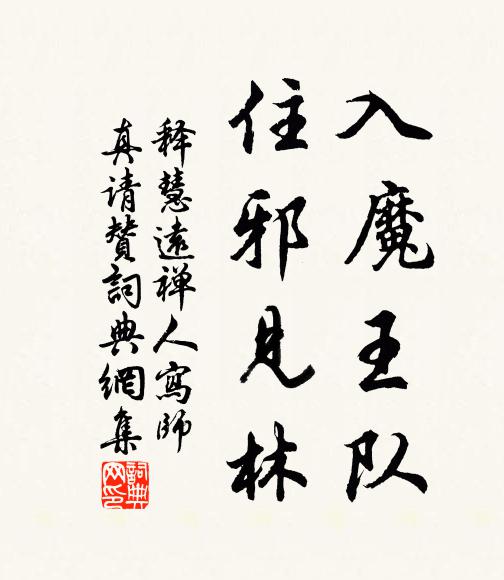 入魔王队
住邪见林
释慧遠禅人寫师
真请赞詞典網集